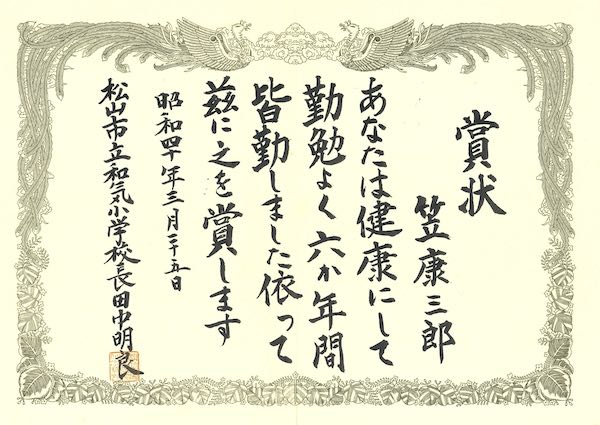 賞状
笠康三郎
あなたは健康にして
勤勉よく六か年間
皆勤しました依って
茲に之を賞します
昭和四十年三月二十五日
松山市立和気小学校長田中明良